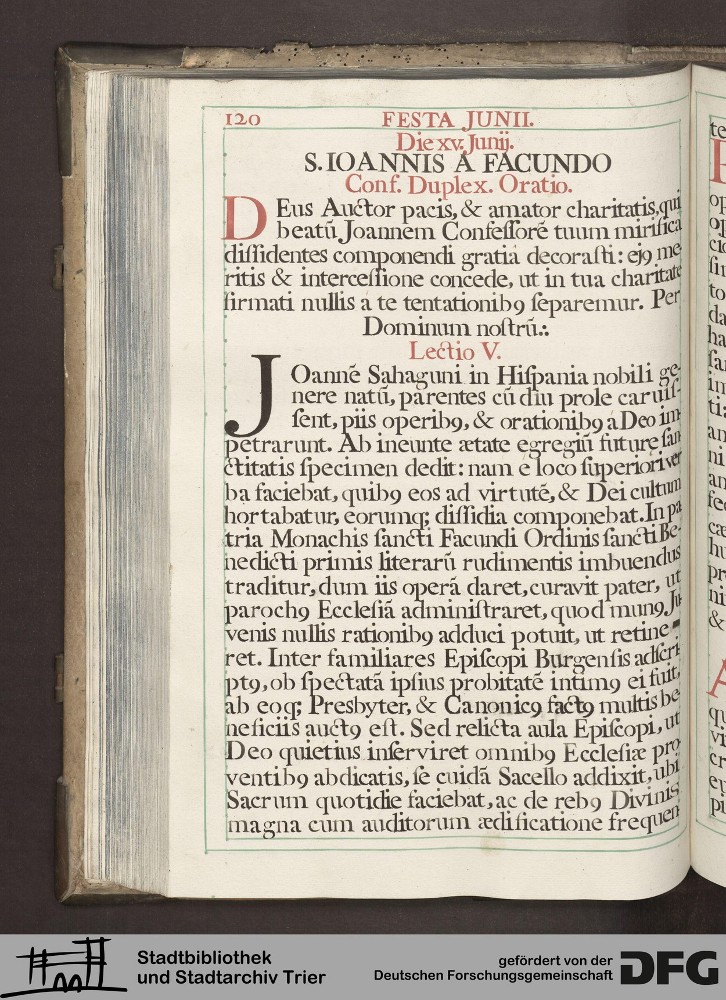 120 FESTA JUNII.
Die xv. Junij.
S. IOANNIS A FACUNDO
Conf. Duplex. Oratio.
DEus Auctor pacis, & amator charitatis, qui
beatū Joannem Confeſſorē tuum mirifica
diſſidentes componendi gratiâ decoraſti: ej9 me-
ritis & interceſſione concede, ut in tua charitate
firmati nullis à te tentationib9 ſeparemur. Per
Dominum noſtrū.:.
Lectio V.
JOannē Sahaguni in Hiſpania nobili ge-
nere natū, parentes cū diu prole caruiſ-
ſent, piis operib9, & orationib9 a Deo im-
petrarunt. Ab ineunte ætate egregiū future ſan-
ctitatis ſpecimen dedit: nam e loco ſuperiori ver
ba faciebat, quib9 eos ad virtutē, & Dei cultum
hortabatur, eorumq; diſſidia componebat. In pa
tria Monachis ſancti Facundi Ordinis ſancti Be-
nedicti primis literarū rudimentis imbuendus
traditur, dum iis operā daret, curavit pater, ut
paroch9 Eccleſiā adminiſtraret, quod mun9, Ju
venis nullis rationib9 adduci potuit, ut retine-
ret. Inter familiares Epiſcopi Burgenſis adſcri
pt9, ob ſpectatā ipſius probitatē intim9 ei fuit,
ab eoq; Presbyter, & Canonic9 fact9 multis be-
neficiis auct9 eſt. Sed relicta aula Epiſcopi, ut
Deo quietius inſerviret omnib9 Eccleſiæ pro
ventib9 abdicatis, ſe cuidā Sacello addixit, ubi
Sacrum quotidie faciebat, ac de reb9 Divinis
magna cum auditorum ædificatione frequen
Stadtbibliothek
und Stadtarchiv Trier
gefördert von der
Deutschen Forschungsgemeinschaft
DFG